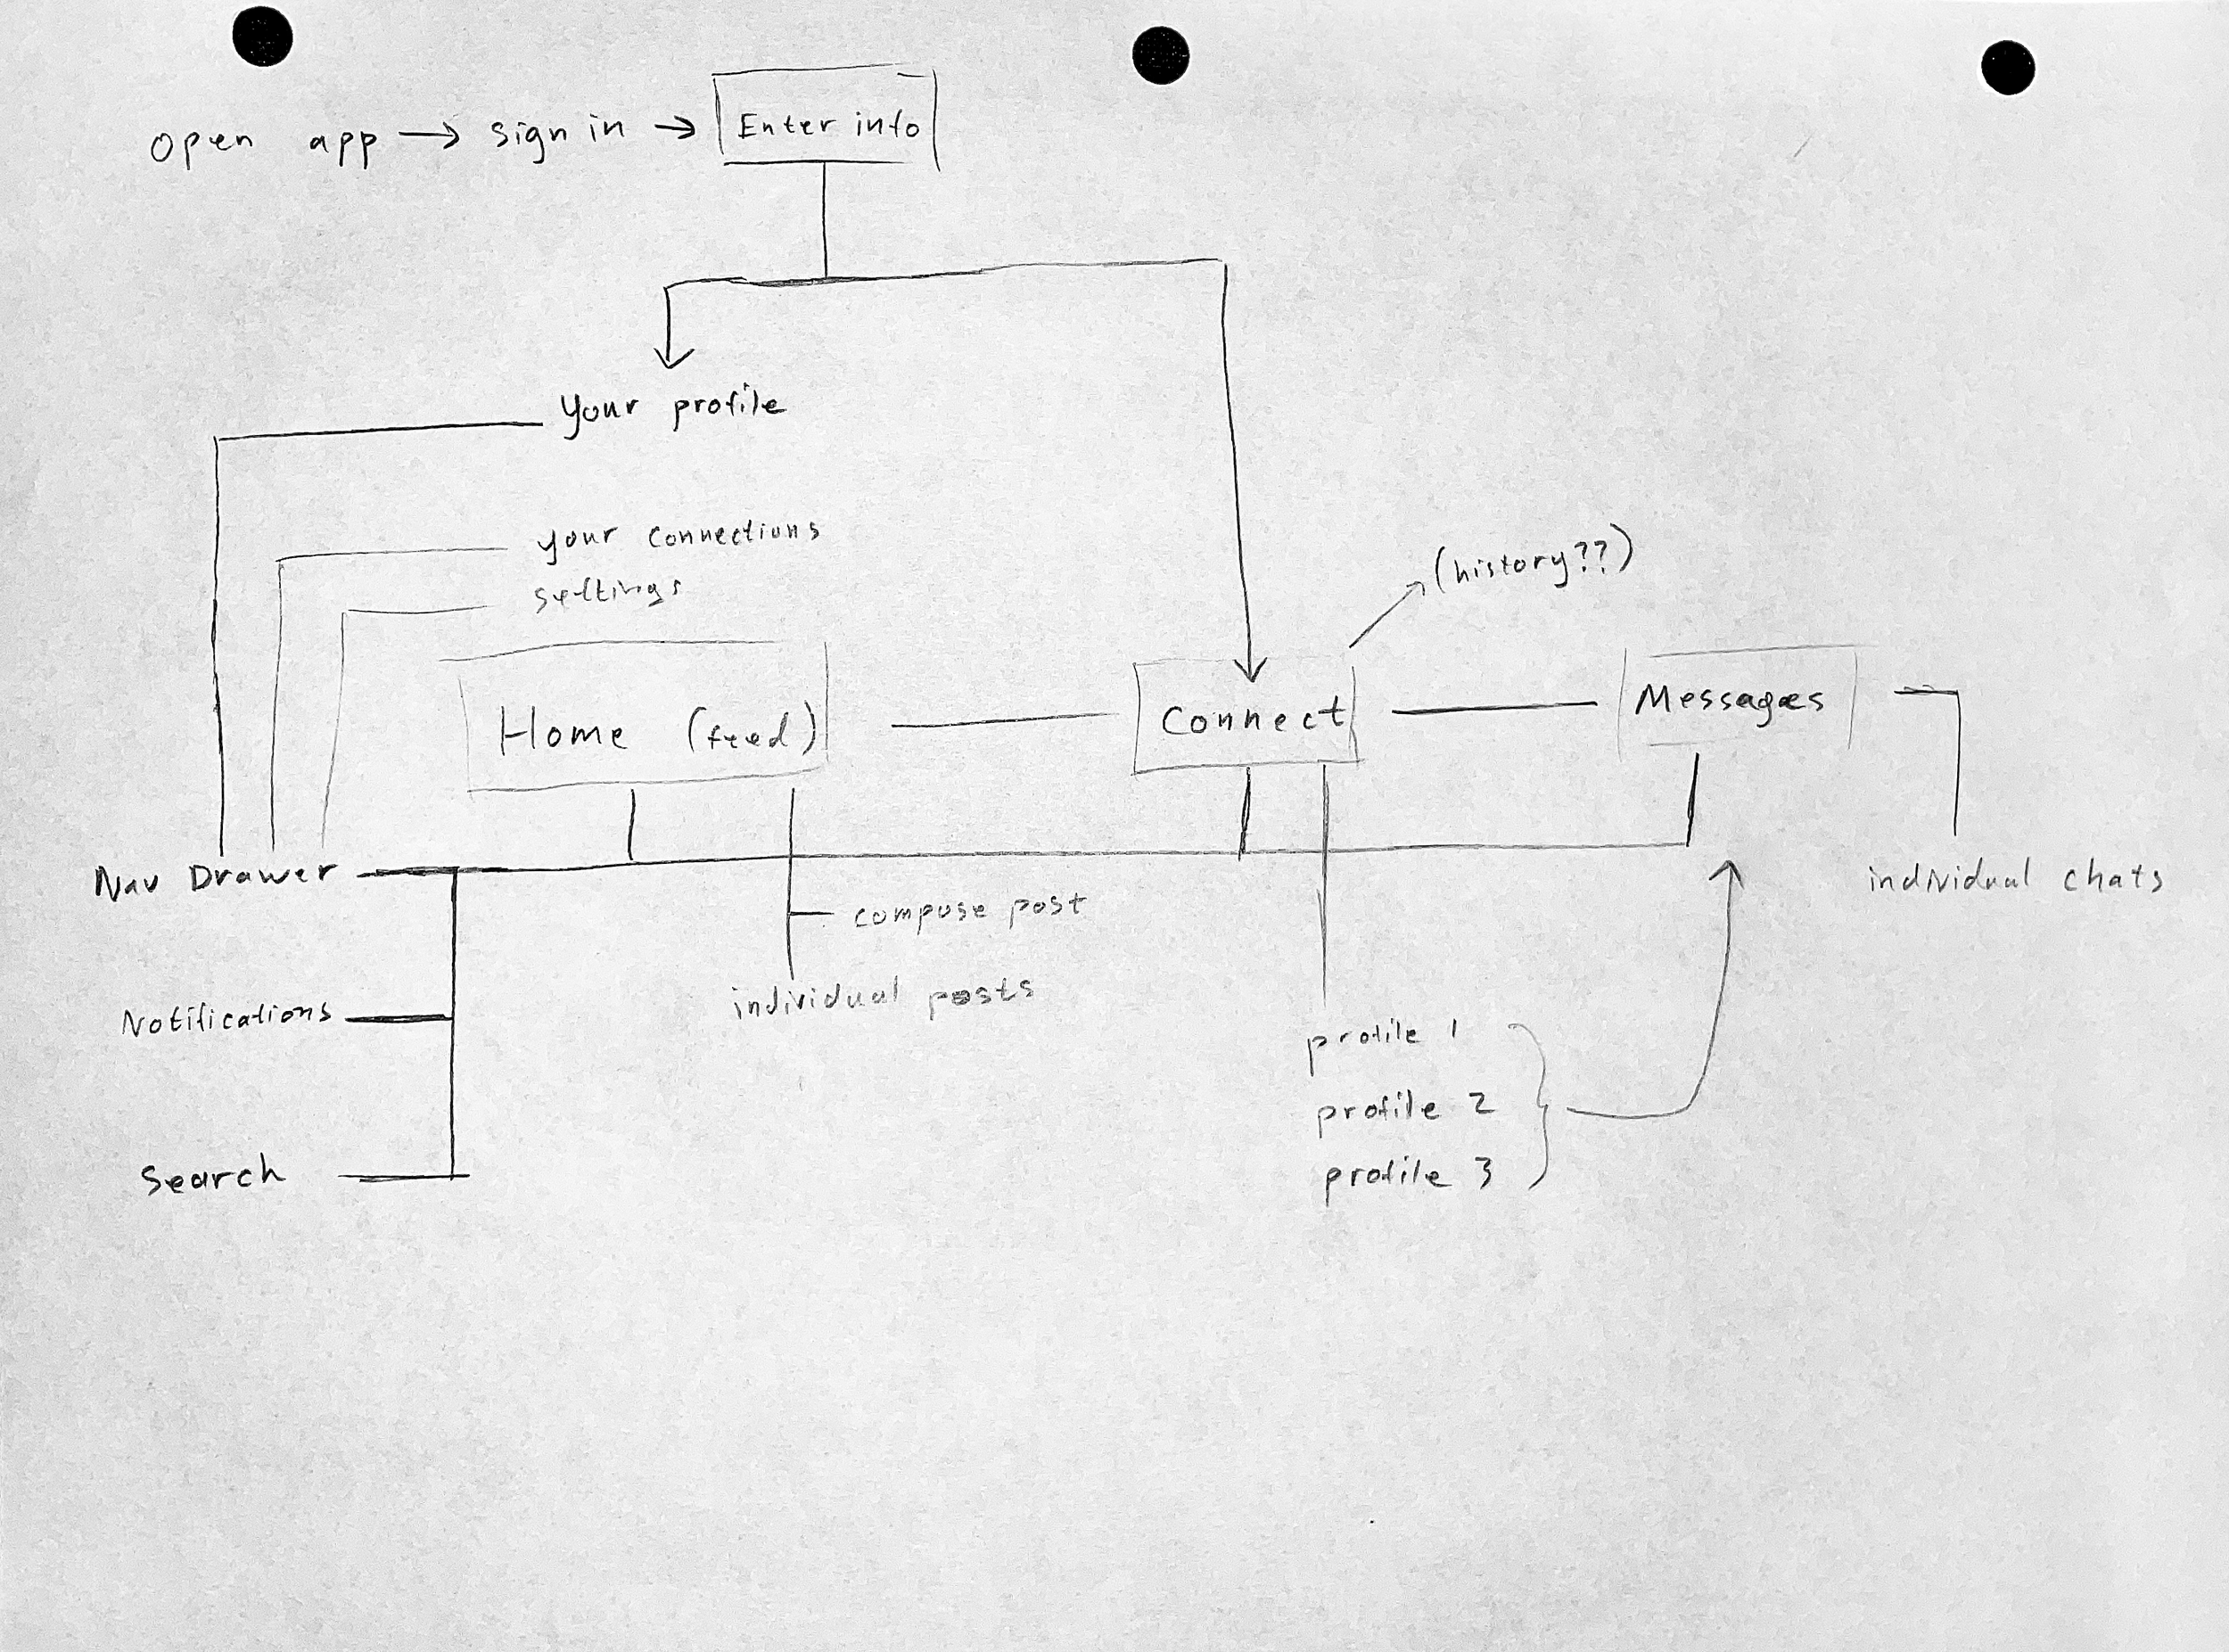 Open app → sign in → Enter info
Your profile
your connections
settings
(history??)
Home (feed)
Connect
Messages
Nav Drawer
individual chats
compose post
individual posts
Notifications
profile 1
profile 2
profile 3
Search